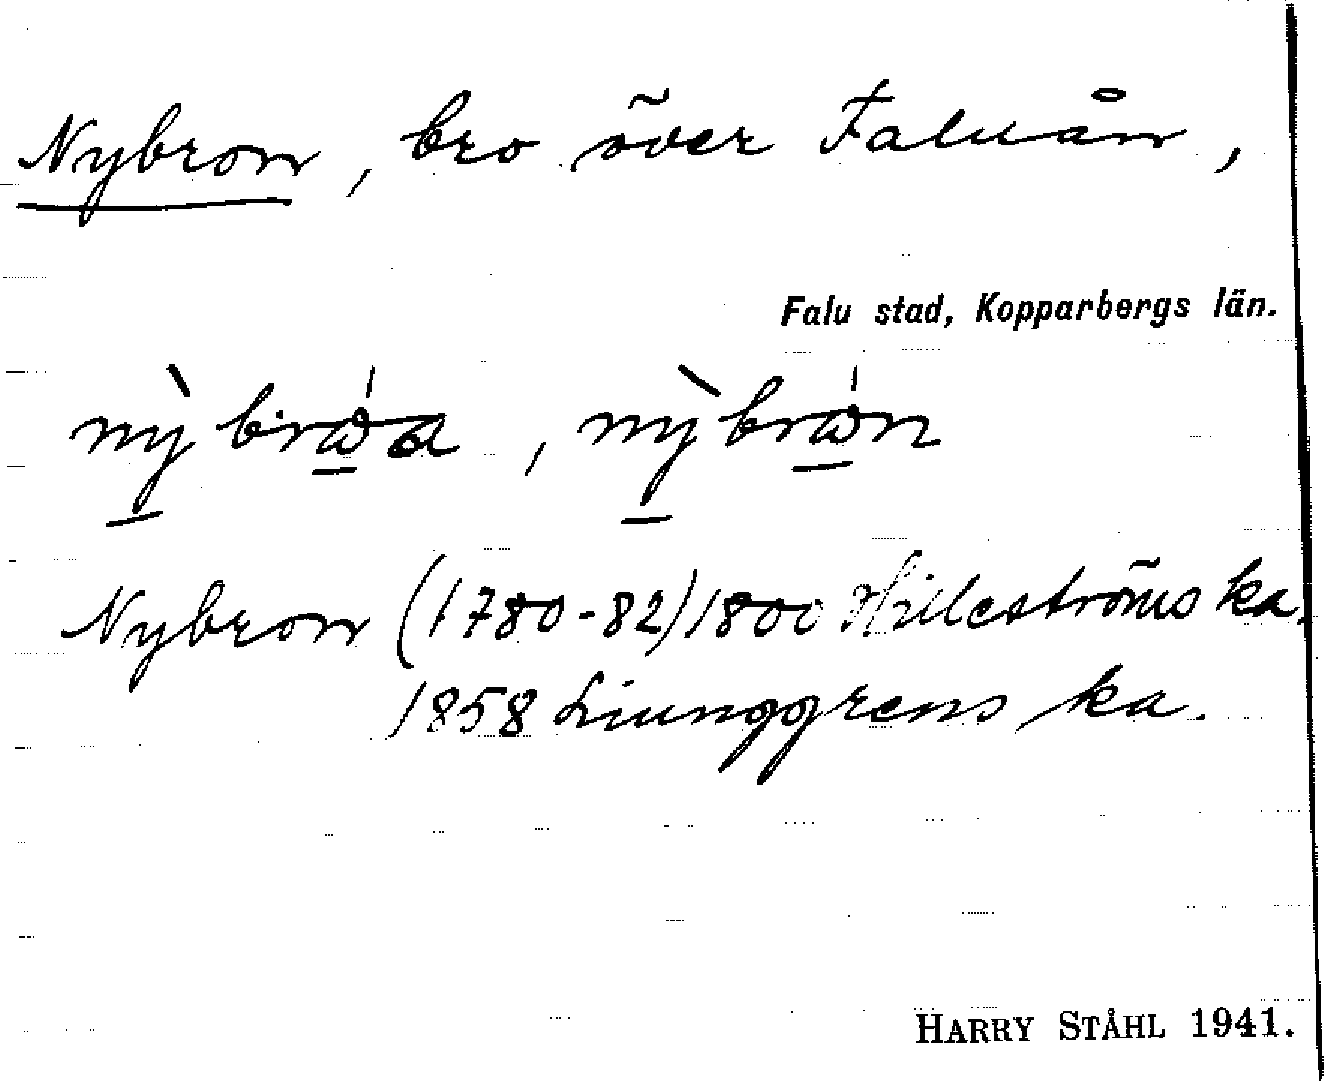 Nybron, bro över Faluån,
Falu stad, Kopparbergs län.
Nybron (1780-82) 1800 Hilleströms ka.
1858 Liunggrens ka.
HARRY STÅHL 1941.